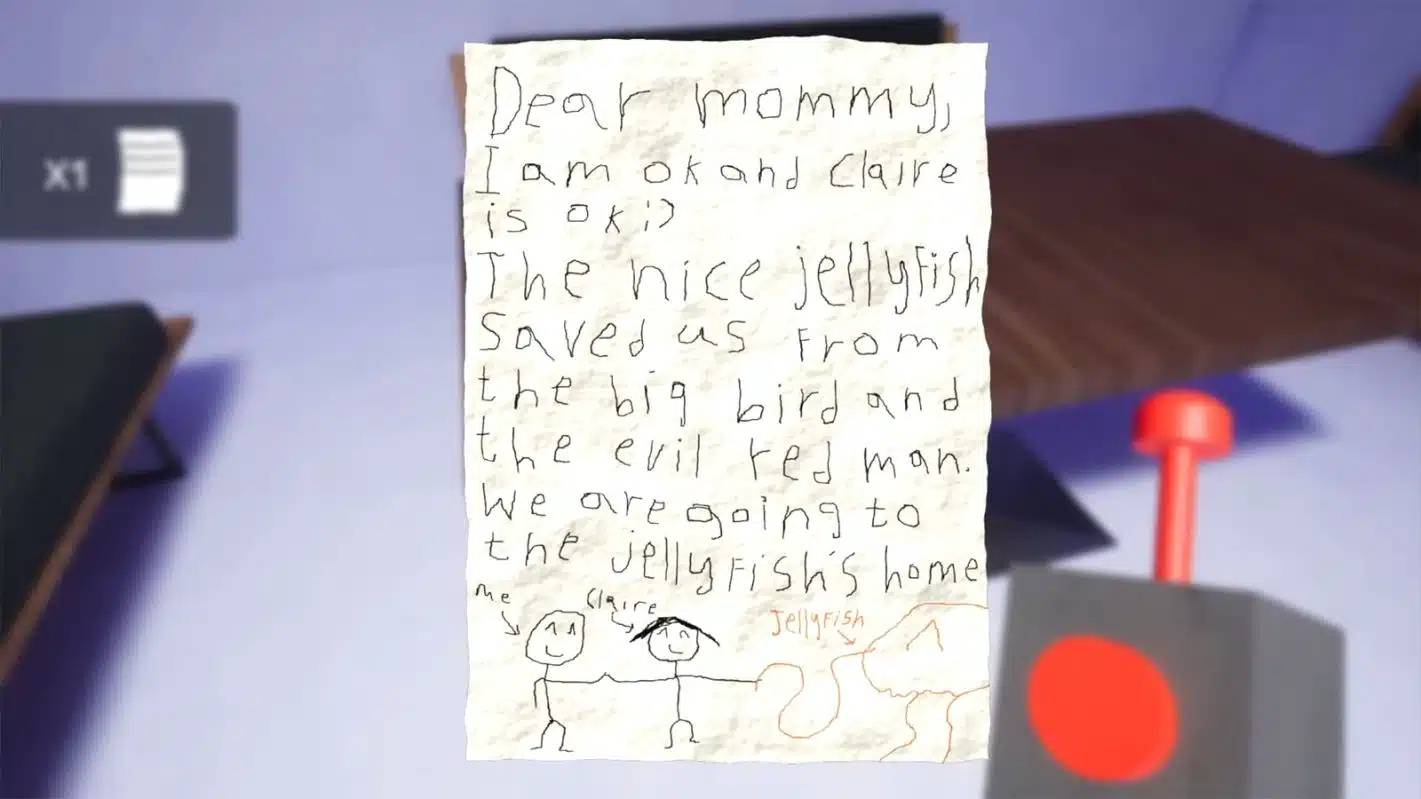 X1
Dear mommy,
I am ok and Claire
is ok :)
The nice jellyfish
saved us from
the big bird and
the evil red man.
We are going to
the jellyfish's home
Me
Claire
Jellyfish